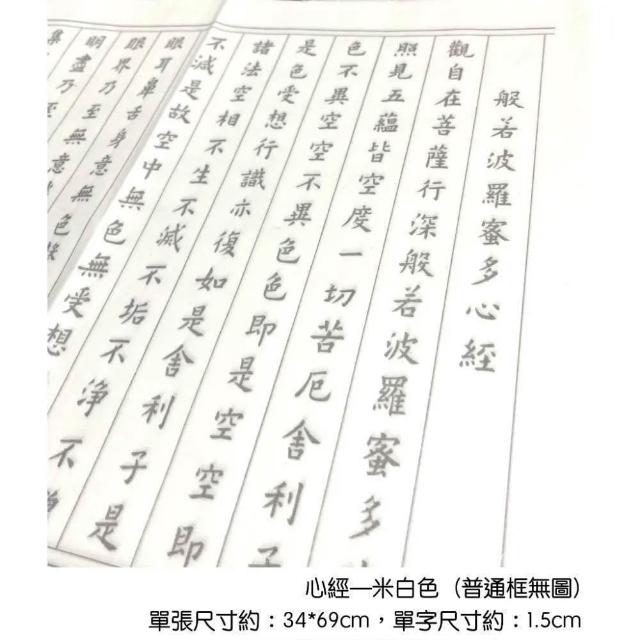 般若波羅蜜多心經
觀自在菩薩行深般若波羅蜜多
照見五蘊皆空度一切苦厄舍利子
色不異空空不異色色即是空空即
是色受想行識亦復如是舍利子是
諸法空相不生不滅不垢不淨不
不減是故空中無色無受想
眼耳鼻舌身意無色
眼界乃至無意
明盡乃至
心經—米白色（普通框無圖）
單張尺寸約：34*69cm，單字尺寸約：1.5cm